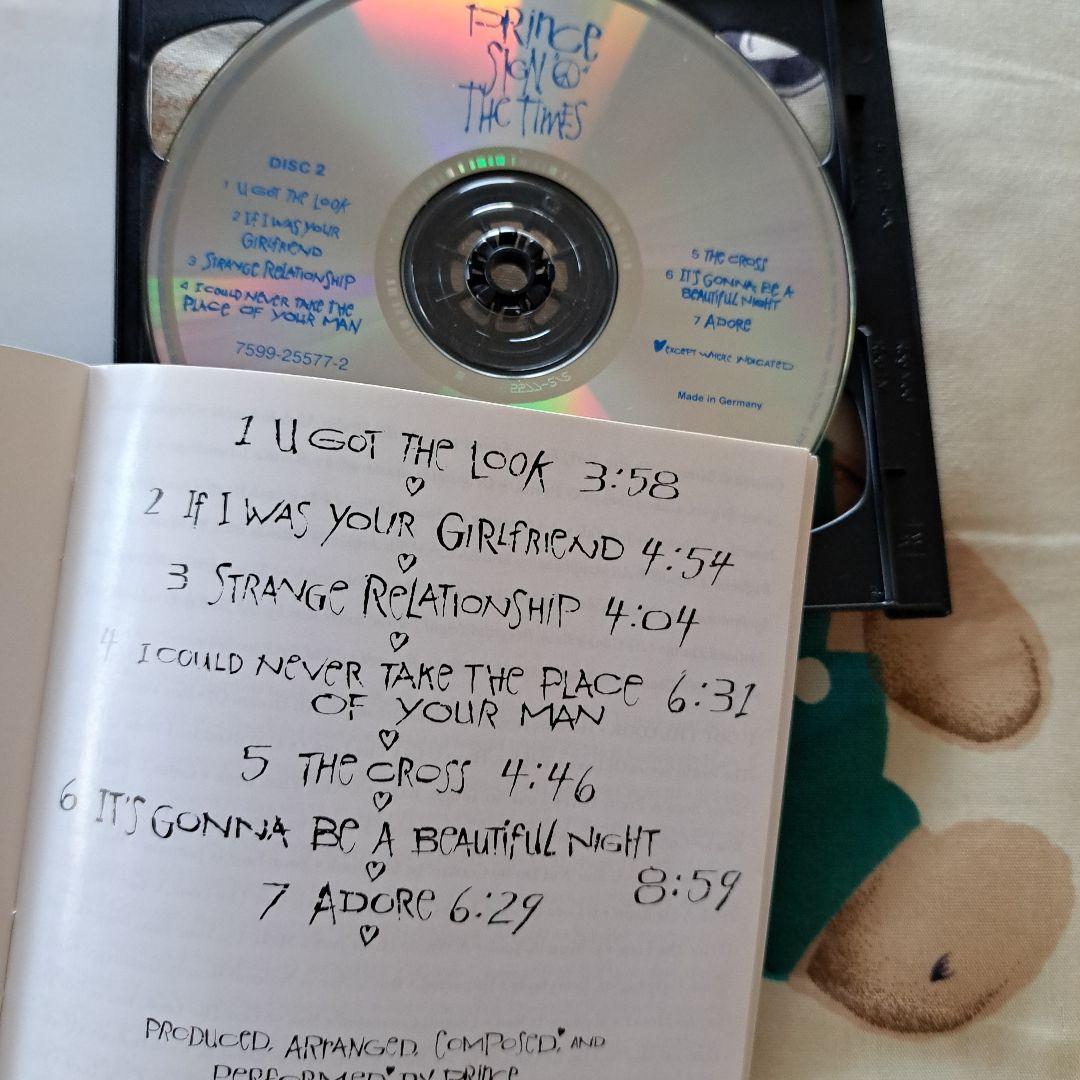 PRINCE
SIGN "☮"
THE TIMES
DISC 2
1 U GOT THE LOOK
2 IF I WAS YOUR
GIRLFRIEND
3 STRANGE RELATIONSHIP
4 I COULD NEVER TAKE THE
PLACE OF YOUR MAN
7599-25577-2
5 THE CROSS
6 IT'S GONNA BE A
BEAUTIFUL NIGHT
7 ADORE
♥EXCEPT WHERE INDICATED
Made in Germany
1 U GOT THE LOOK 3:58
♡
2 If I WAS YOUR GIRLfRIEND 4:54
♡
3 STRANGE RELATIONSHIP 4:04
♡
4 I COULD NEVER TAKE THE PLACE 6:31
OF YOUR MAN
♡
5 THE CROSS 4:46
♡
6 IT'S GONNA BE A BEAUTIfUL NIGHT
8:59
♡
7 ADORE 6:29
♡
PRODUCED, ARRANGED, COMPOSED♥ AND
PERFORMED♥ BY PRINCE